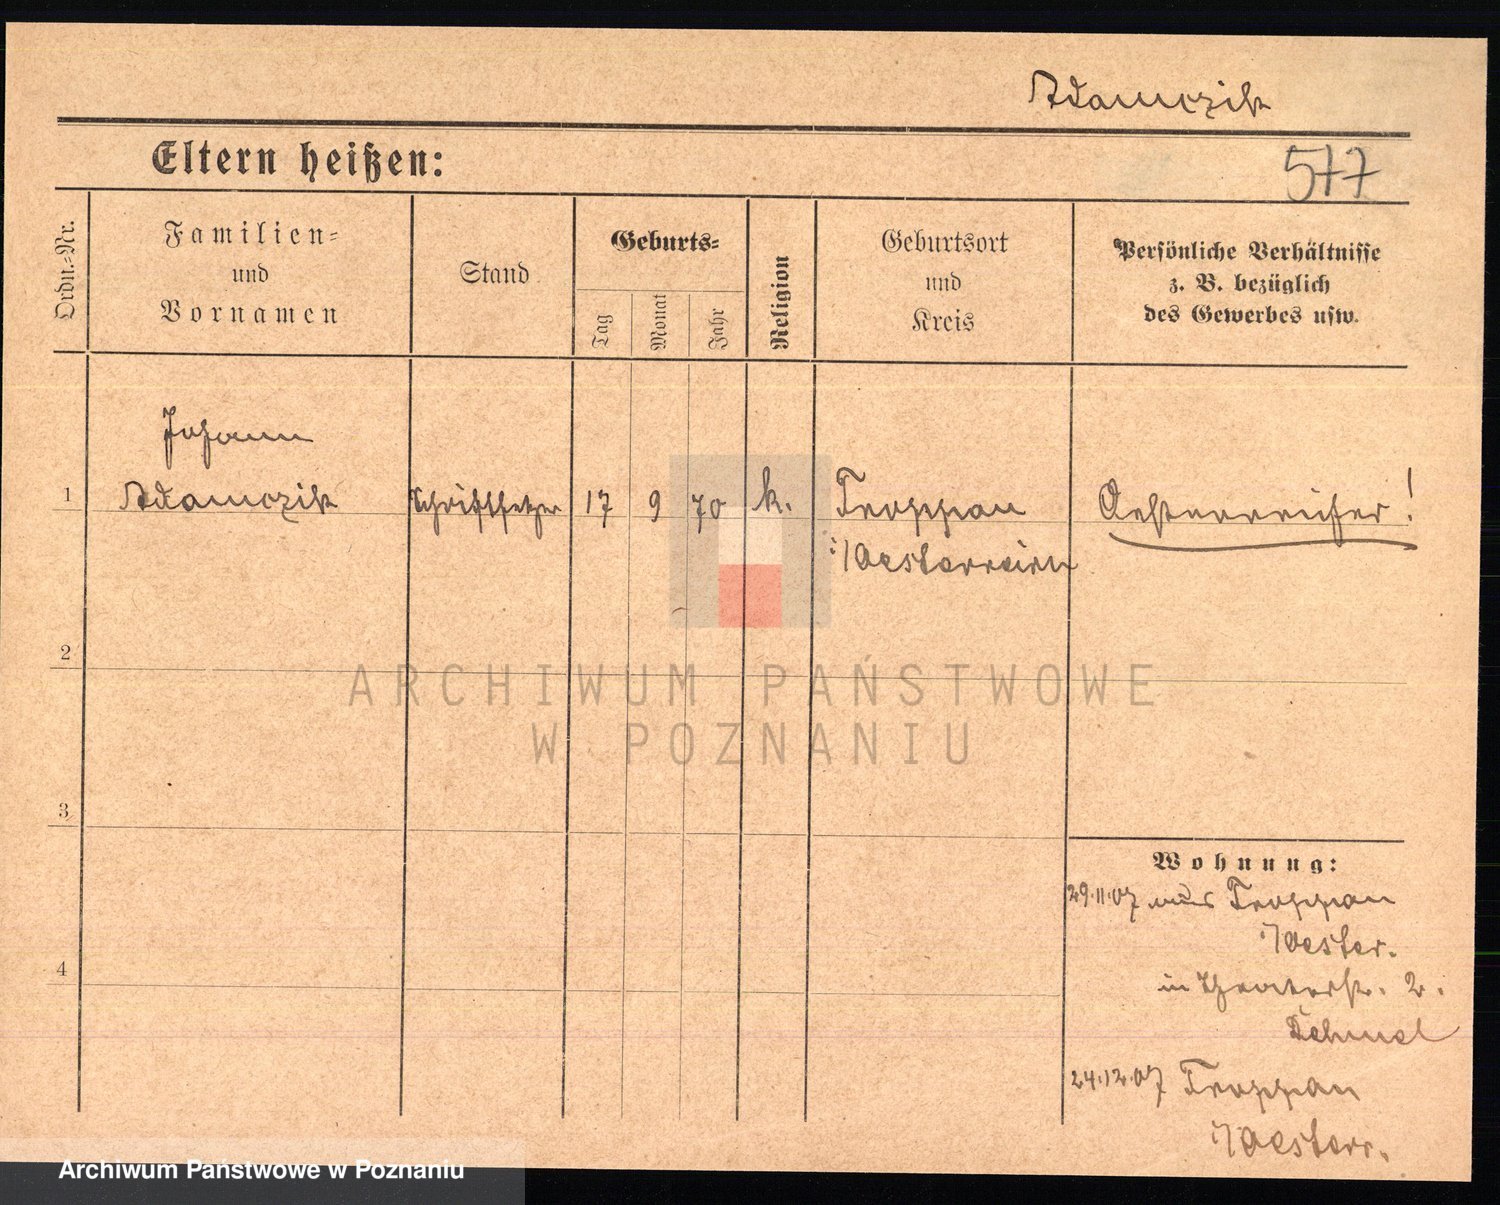 Adamczik
Eltern heißen:
577
Ordn.-Nr.
Familien-
und
Vornamen
Stand
Geburts-
Tag
Monat
Jahr
Religion
Geburtsort
und
Kreis
Persönliche Verhältnisse
z. B. bezüglich
des Gewerbes usw.
Johann
1 Adamczik Schriftsetzer 17 9 70 k. Troppau Oesterreicher!
i/Oesterreich
2
ARCHIWUM PAŃSTWOWE
W POZNANIU
3
Wohnung:
29.11.07 aus Troppau
i/Oester.
4
in Theaterstr. 2.
24.12.07 Troppau
i/Oesterr.
Archiwum Państwowe w Poznaniu